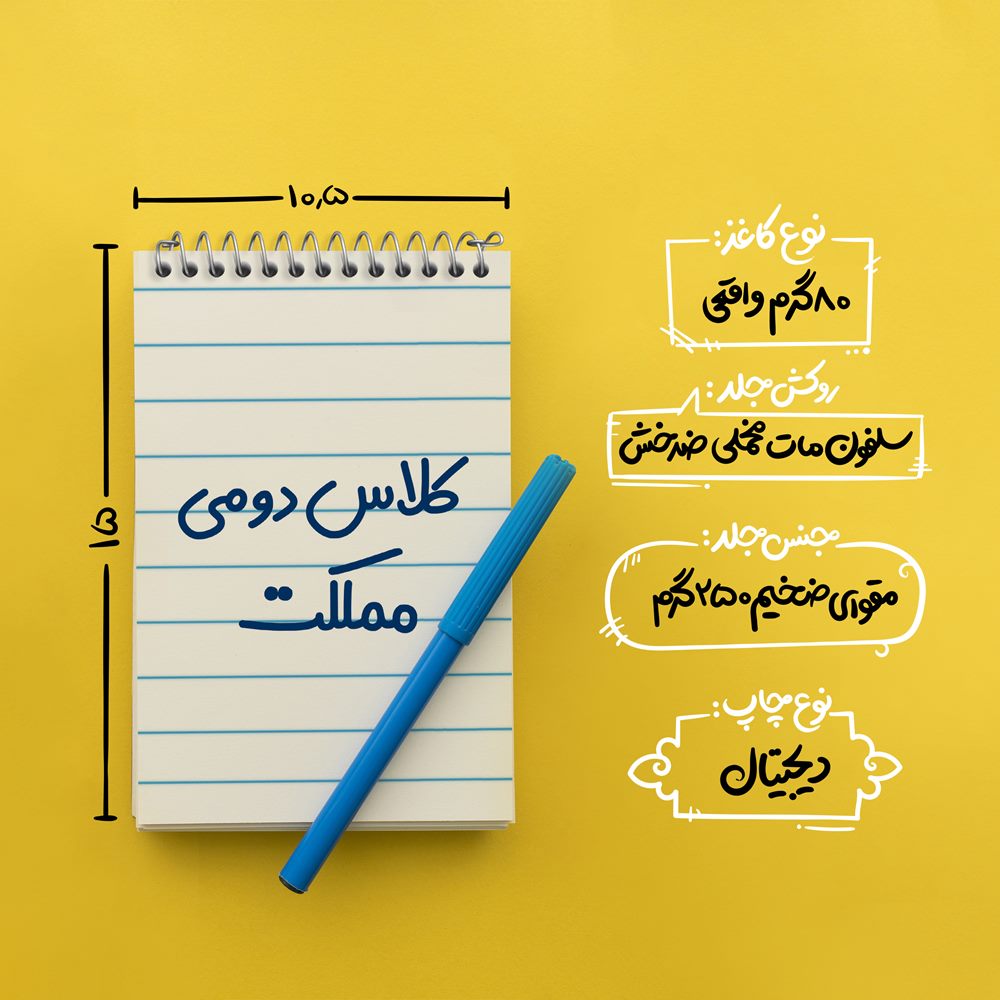 ۱۰٫۵
۱۵
کلاس دومی
مملکت
نوع کاغذ:
۸۰ گرم واقعی
روکش جلد:
سلفون مات مخملی ضدخش
جنس جلد:
مقوای ضخیم ۲۵۰ گرم
نوع چاپ:
دیجیتال